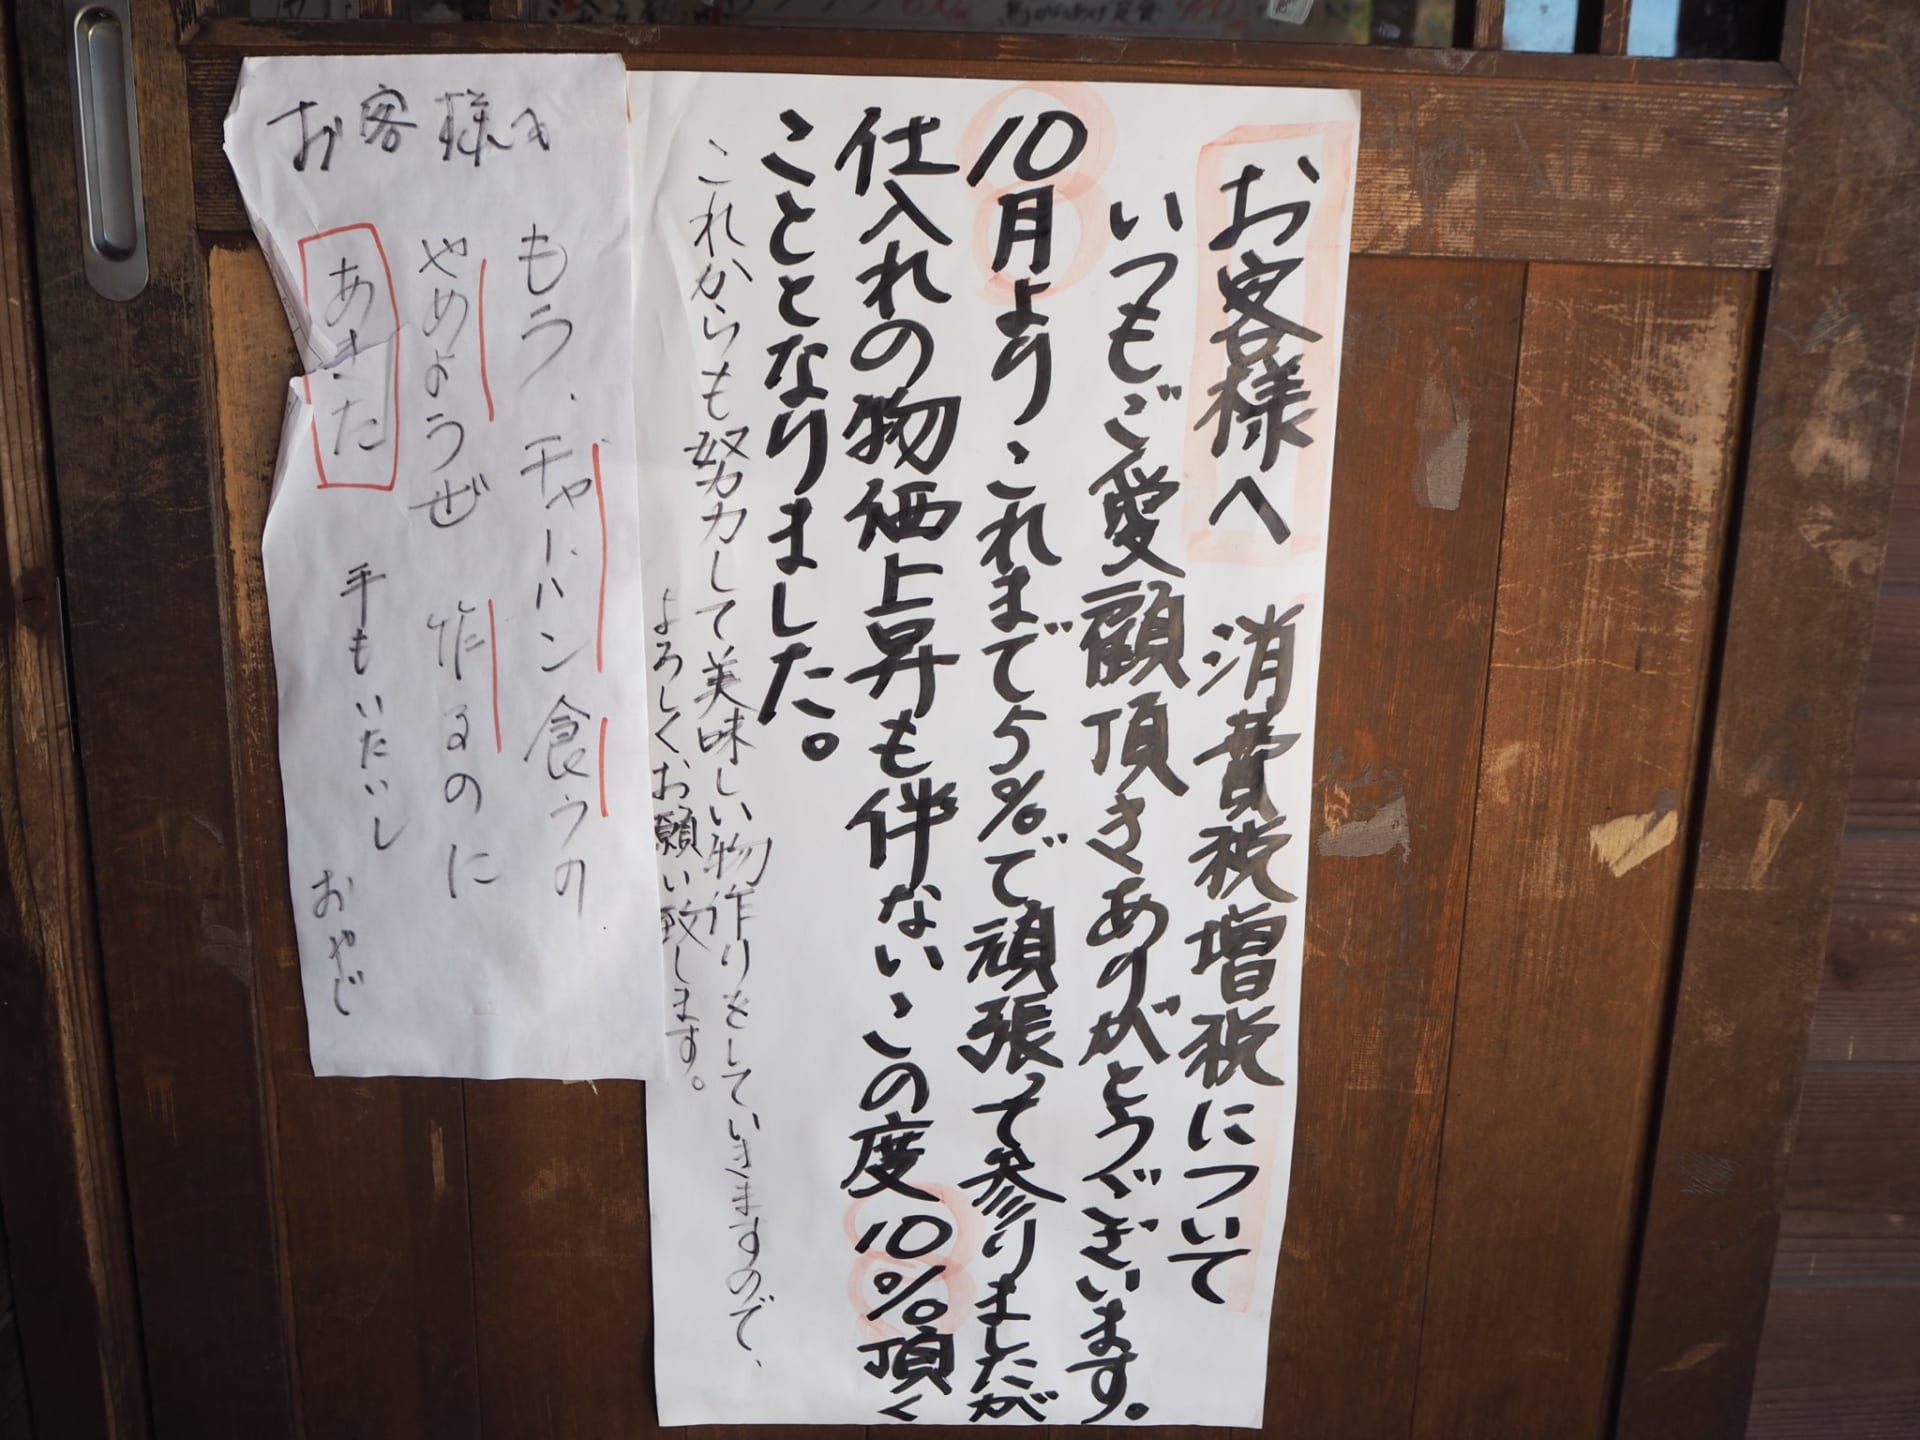 お客様へ 消費税増税について
いつもご愛顧頂きありがとうございます。
10月よりこれまで5%で頑張って参りましたが
仕入れの物価上昇も伴ないこの度10%頂く
こととなりました。
これからも努力して美味しい物作りをしていきますので、
よろしくお願い致します。
お客様へ
もう、チャーハン食うの
やめようぜ 作るのに
あきた
手もいたいし
おやじ